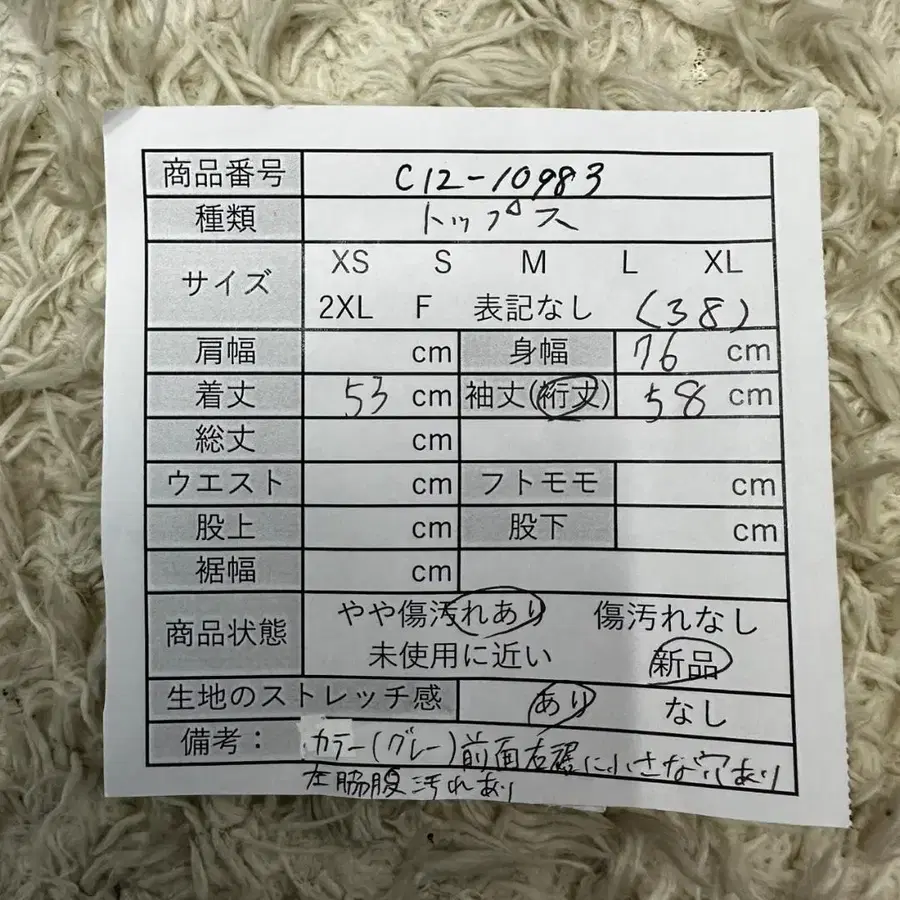 商品番号 C12-10983
種類 トップス
サイズ XS S M L XL
2XL F 表記なし (38)
肩幅 cm 身幅 76 cm
着丈 53 cm 袖丈(裄丈) 58 cm
総丈 cm
ウエスト cm フトモモ cm
股上 cm 股下 cm
裾幅 cm
商品状態 やや傷汚れあり 傷汚れなし
未使用に近い 新品
生地のストレッチ感 あり なし
備考: カラー(グレー)前面右裾に小さな穴あり
左脇腹汚れあり